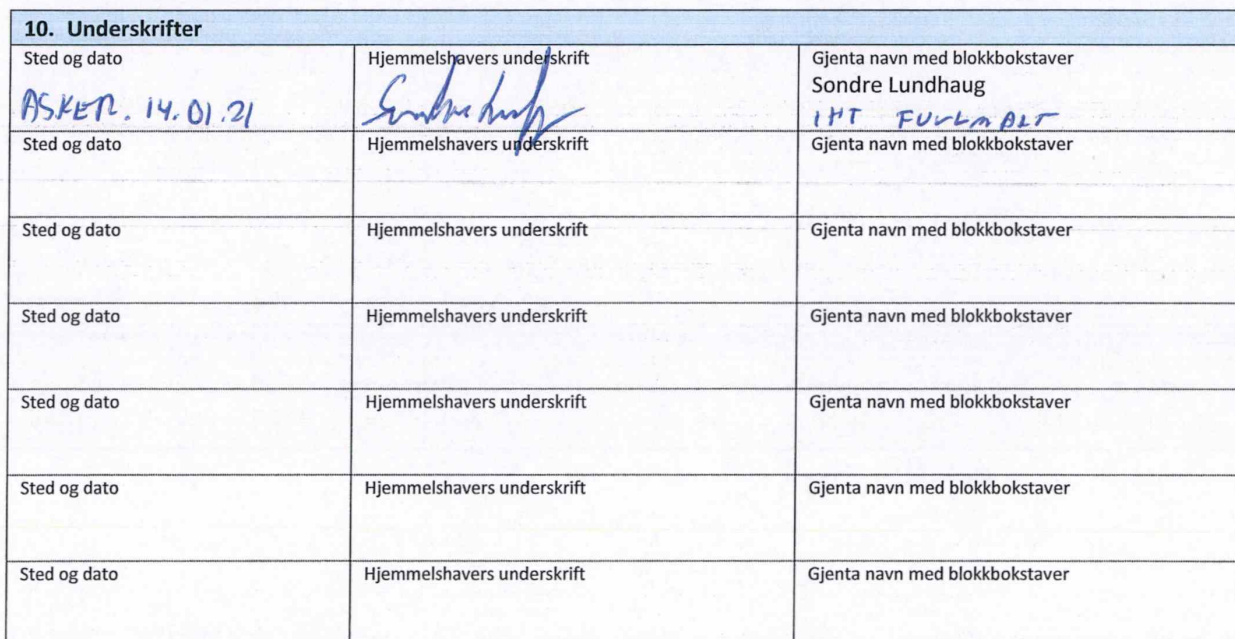 10. Underskrifter
Sted og dato
Hjemmelshavers underskrift
Gjenta navn med blokkbokstaver
ASKER. 14.01.21
Sondre Lundhaug
IHT FULLMAKT
Sted og dato
Hjemmelshavers underskrift
Gjenta navn med blokkbokstaver
Sted og dato
Hjemmelshavers underskrift
Gjenta navn med blokkbokstaver
Sted og dato
Hjemmelshavers underskrift
Gjenta navn med blokkbokstaver
Sted og dato
Hjemmelshavers underskrift
Gjenta navn med blokkbokstaver
Sted og dato
Hjemmelshavers underskrift
Gjenta navn med blokkbokstaver
Sted og dato
Hjemmelshavers underskrift
Gjenta navn med blokkbokstaver